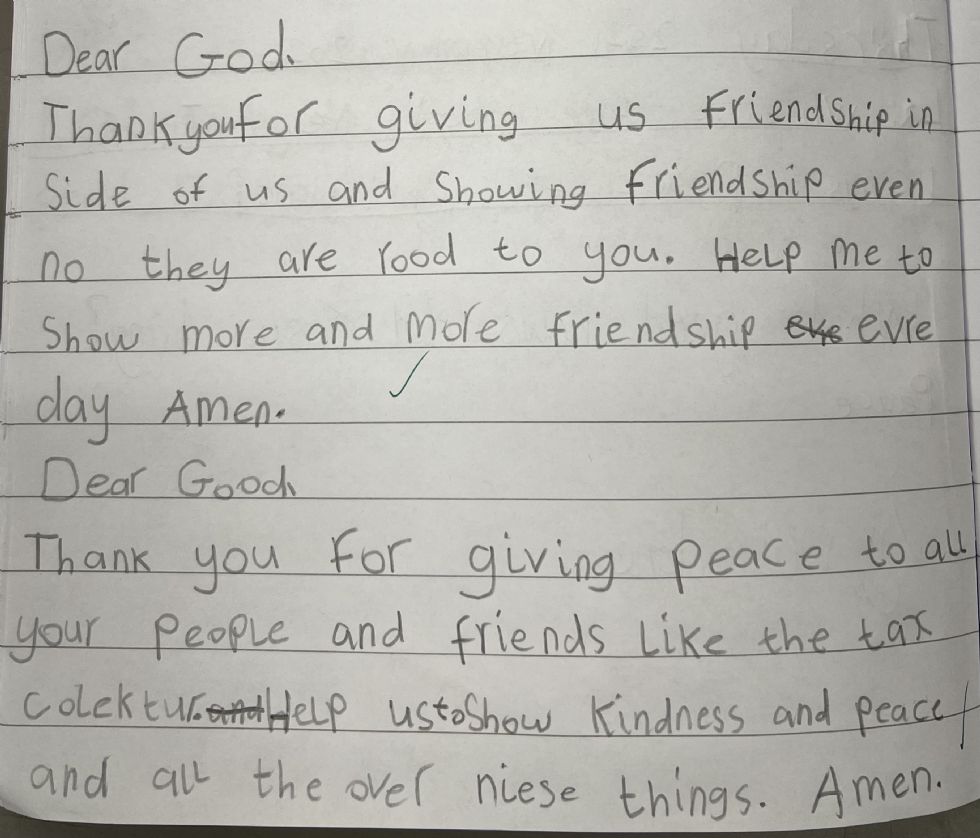 Dear God.
Thank you For giving us friendship in
side of us and Showing friendship even
no they are rood to you. Help me to
Show more and more friendship eve evre
day Amen.
Dear Good.
Thank you For giving peace to all
your people and friends Like the tax
colektur. and Help us to Show kindness and peace
and all the over niese things. Amen.